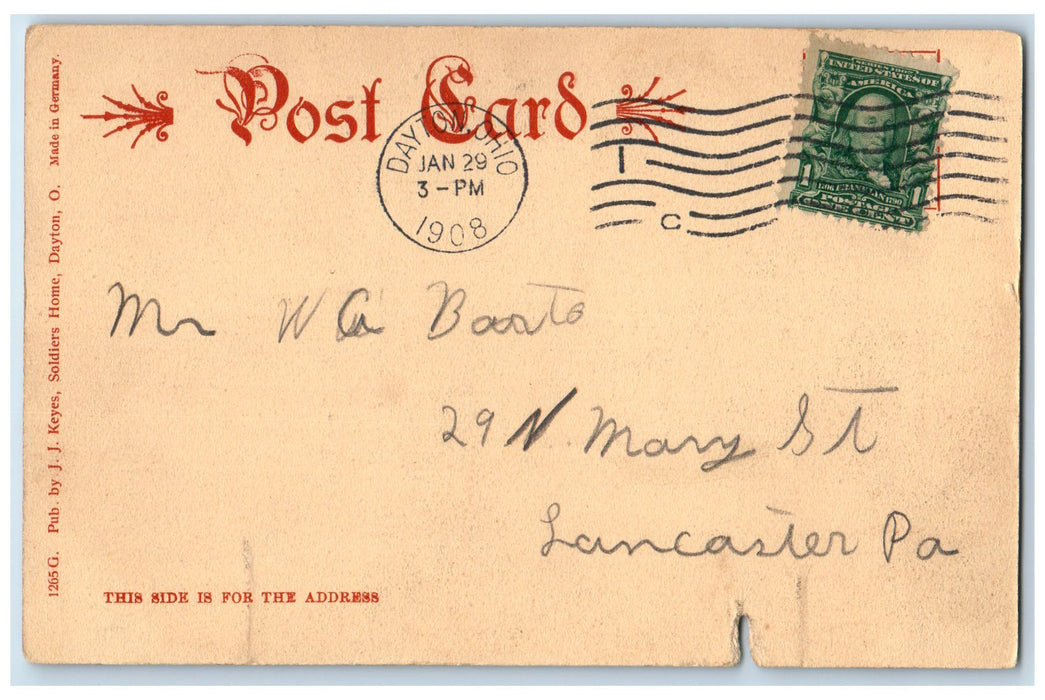 Post Card
DAYTON, OHIO
JAN 29
3-PM
1908
1
C
SERIES 1902
UNITED STATES OF
AMERICA
1 1
1706 FRANKLIN 1790
POSTAGE
ONE CENT
Mr W G Barto
29 N. Mary St
Lancaster Pa
THIS SIDE IS FOR THE ADDRESS
1265 G. Pub. by J. J. Keyes, Soldiers Home, Dayton, O. Made in Germany.